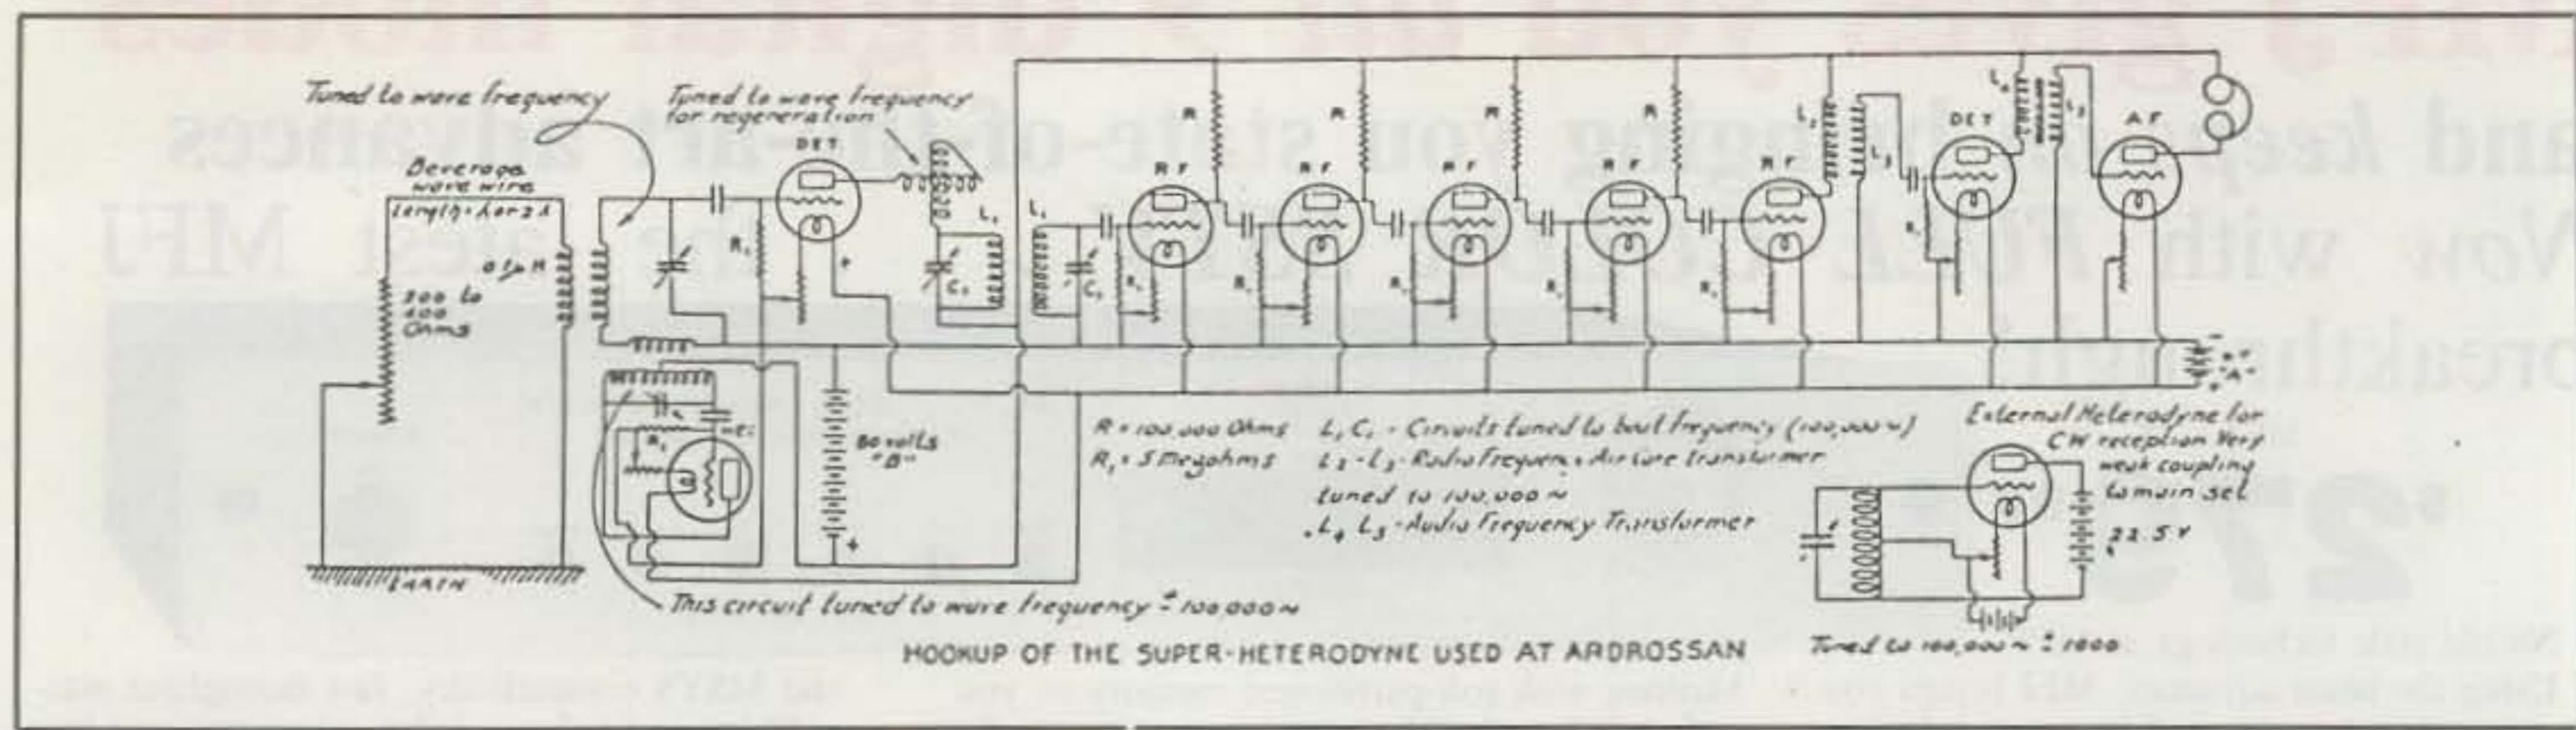 Tuned to wave frequency
Tuned to wave frequency
for regeneration
DET.
Beverage
wave wire
Length = λ or 2 λ
200 to
400
Ohms
EARTH
R₁
+
L₁
C₁
L₁
C₁
R
R
R
R
RF
RF
RF
RF
RF
R₁
R₁
R₁
R₁
R₁
L₂
L₃
DET
R₁
L₄
L₅
AF
-
"A"
+
R₁
80 volts
"B"
+
R = 100,000 Ohms
R₁ = 5 Megohms
L₁ C₁ - Circuits tuned to beat frequency (100,000 ~)
L₂ - L₃ - Radio Frequency Air Core transformer
tuned to 100,000 ~
L₄ L₅ - Audio Frequency Transformer
External Heterodyne for
CW reception Very
weak coupling
to main set
22.5 V
Tuned to 100,000 ~ ± 1000
This circuit tuned to wave frequency ± 100,000 ~
HOOKUP OF THE SUPER-HETERODYNE USED AT ARDROSSAN